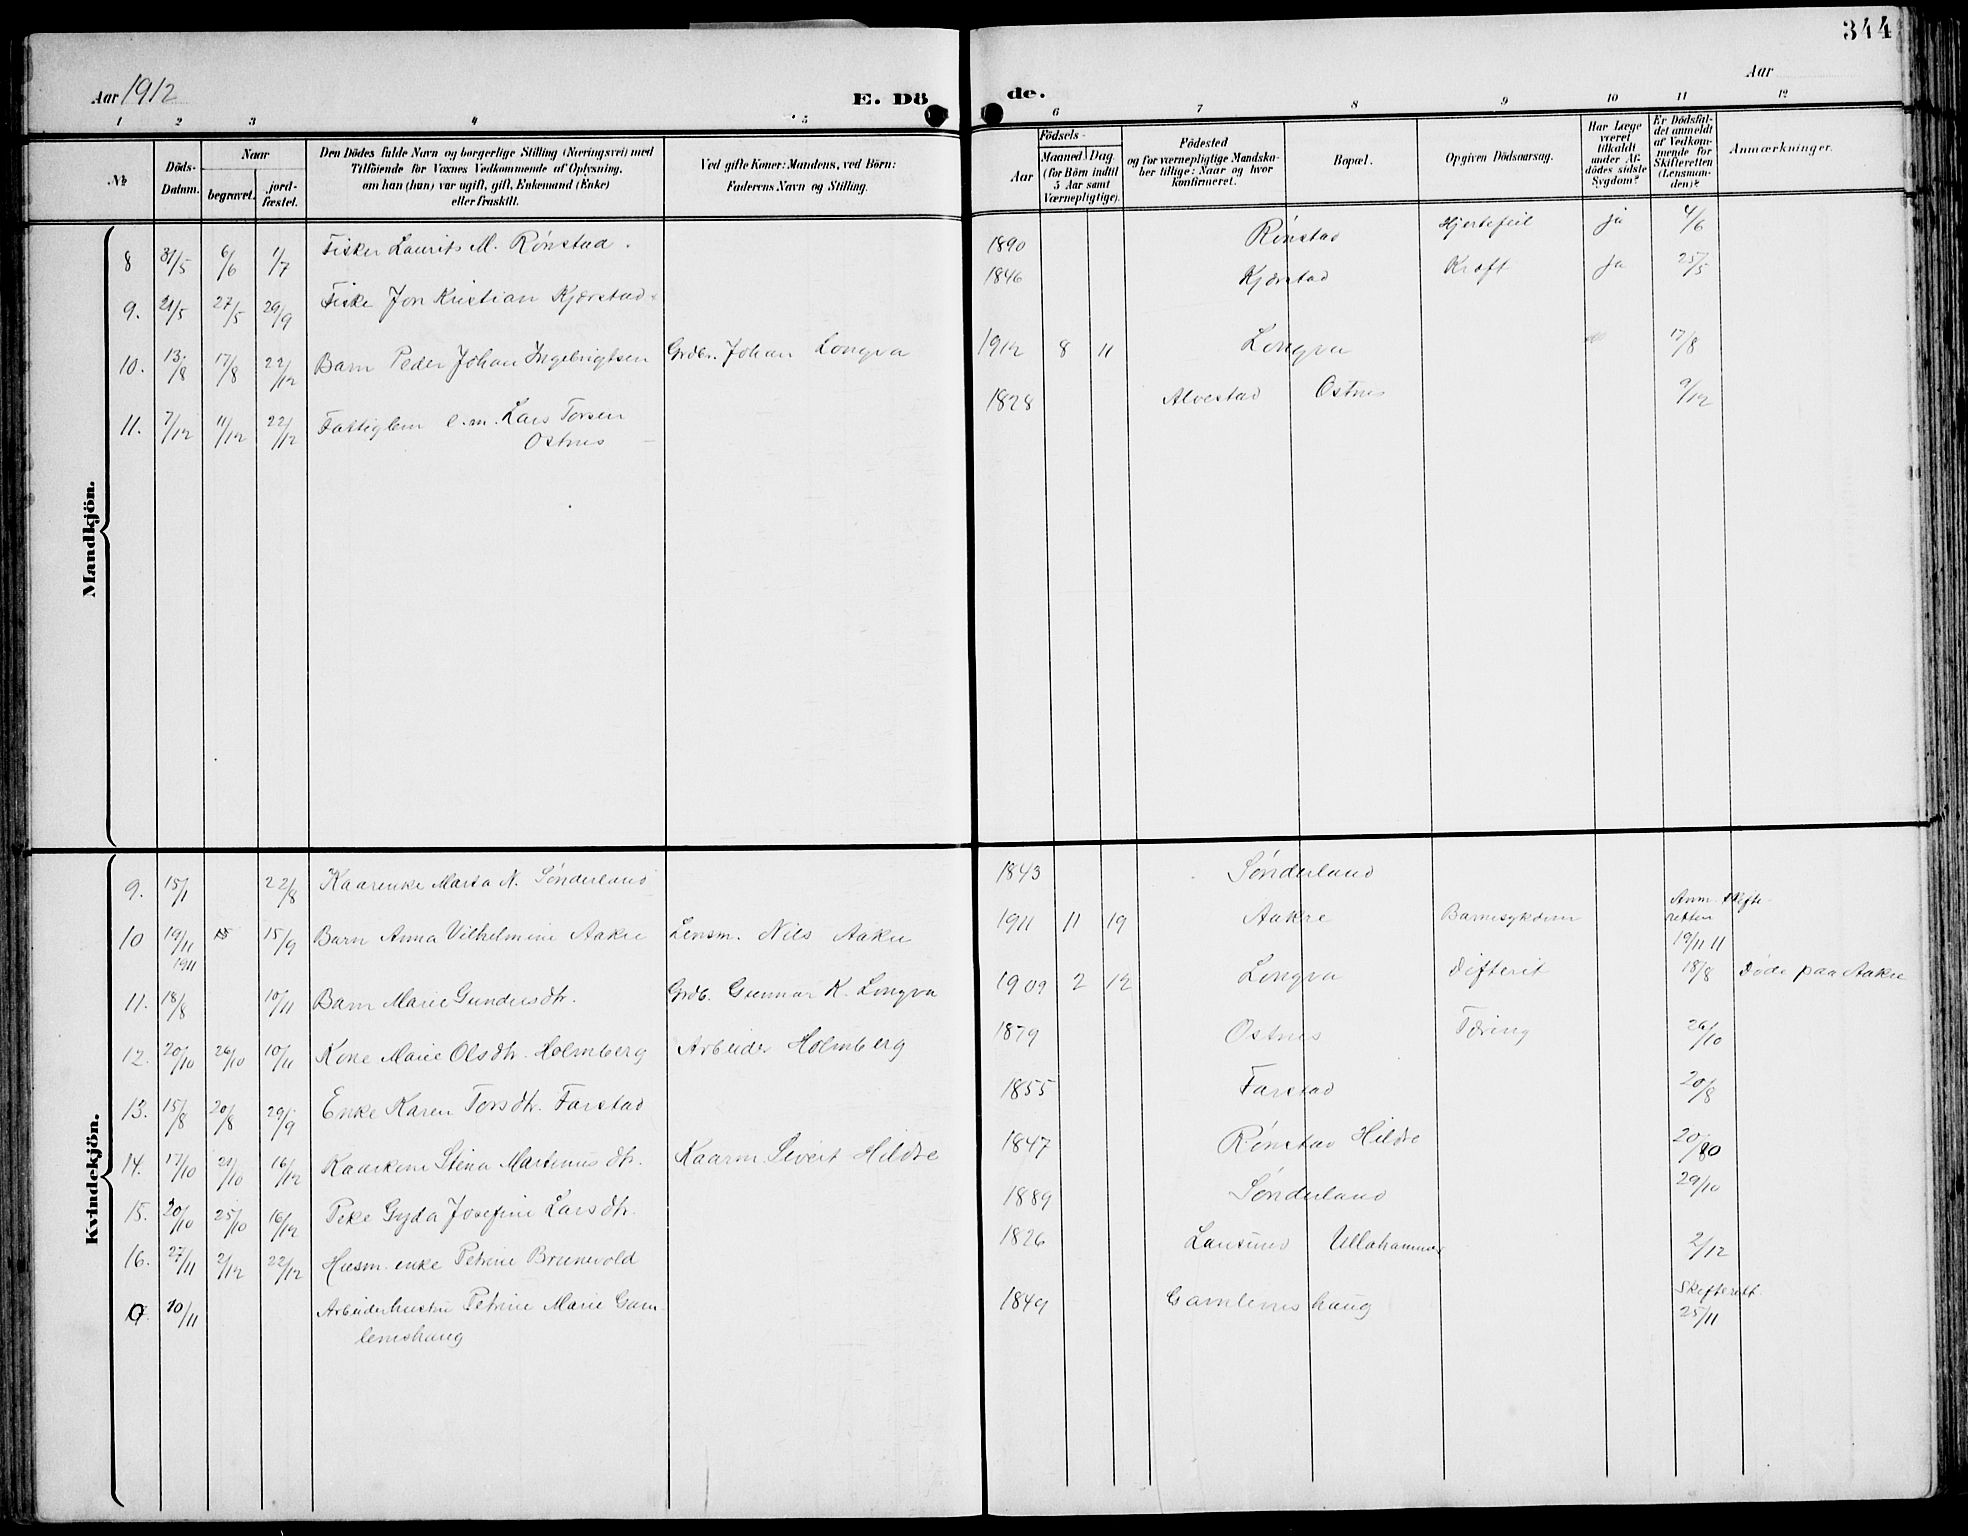 344
Aar 1912
E. Dö
de.
Aar
1 2 3 4 5 6 7 8 9 10 11 12
№
Döds-Datum.
Naar
begravet.
jord-fæstet.
Den Dödes fulde Navn og borgerlige Stilling (Næringsvei) med
Tilföiende for Voxnes Vedkommende af Oplysning,
om han (hun) var ugift, gift, Enkemand (Enke)
eller fraskilt.
Ved gifte Koner: Mandens, ved Börn:
Faderens Navn og Stilling.
Födsels-
Aar
Maaned Dag
(for Börn indtil
5 Aar samt
Værnepligtige).
Födested
og for værnepligtige Mandska-
ber tillige: Naar og hvor
konfirmeret.
Bopæl.
Opgiven Dödsaarsag.
Har Læge
været
tilkaldt
under Af-
dödes sidste
Sygdom?
Er Dödsfal-
det anmeldt
af Vedkom-
mende for
Skifteretten
(Lensman-
den)?
Anmærkninger.
Mandkjön.
8 31/5 6/6 1/7 Fisker Laurits M. Rønstad. 1890 Rønstad Hjertefeil ja 4/6
9. 21/5 27/5 29/9 Fiske Jon Kristian Kjærstad 1846 Kjærstad Kræft ja 25/5
10. 13/8 17/8 22/12 Barn Peder Johan Ingebrigtsen Grdbr. Johan Longva 1912 8 11 Longva 17/8
11. 7/12 11/12 22/12 Fattiglem e.m. Lars Torsen 1828 Alvestad Ostnes 9/12
Ostnes
Kvindekjön.
9. 15/1 22/8 Kaarenke Marta N. Sønderland 1843 Sønderland
10 19/11 1911 15/9 Barn Anna Vilhelmine Aakre Lensm. Nils Aakre 1911 11 19 Aakre Barnesykdom Anm. skifte-
retten
19/11 11
11. 18/8 10/11 Barn Marie Gundersdtr. Grdb. Gunnar K. Longva 1909 2 12 Longva Difterit 18/8 Døde paa Aakre
12. 20/10 26/10 10/11 Kone Marie Olsdtr. Holmberg Arbeider Holmberg 1879 Ostnes Tæring 26/10
13. 15/8 20/8 29/9 Enke Karen Torsdtr. Farstad 1855 Farstad 20/8
14. 17/10 21/10 16/12 Kaarkone Stina Martinusdtr. Kaarm. Sivert Hildre 1847 Rønstad Hildre 20/10
15. 20/10 25/10 16/12 Pike Gyda Josefine Larsdtr. 1889 Sønderland 29/10
16. 27/11 2/12 22/12 Husm. enke Petrine Brunevold 1826 Ullahammer 2/12
10/11 Arbeiderhustru Petrine Marie Gam- 1849 Gamlemshaug Skifterett
25/11
lemshaug